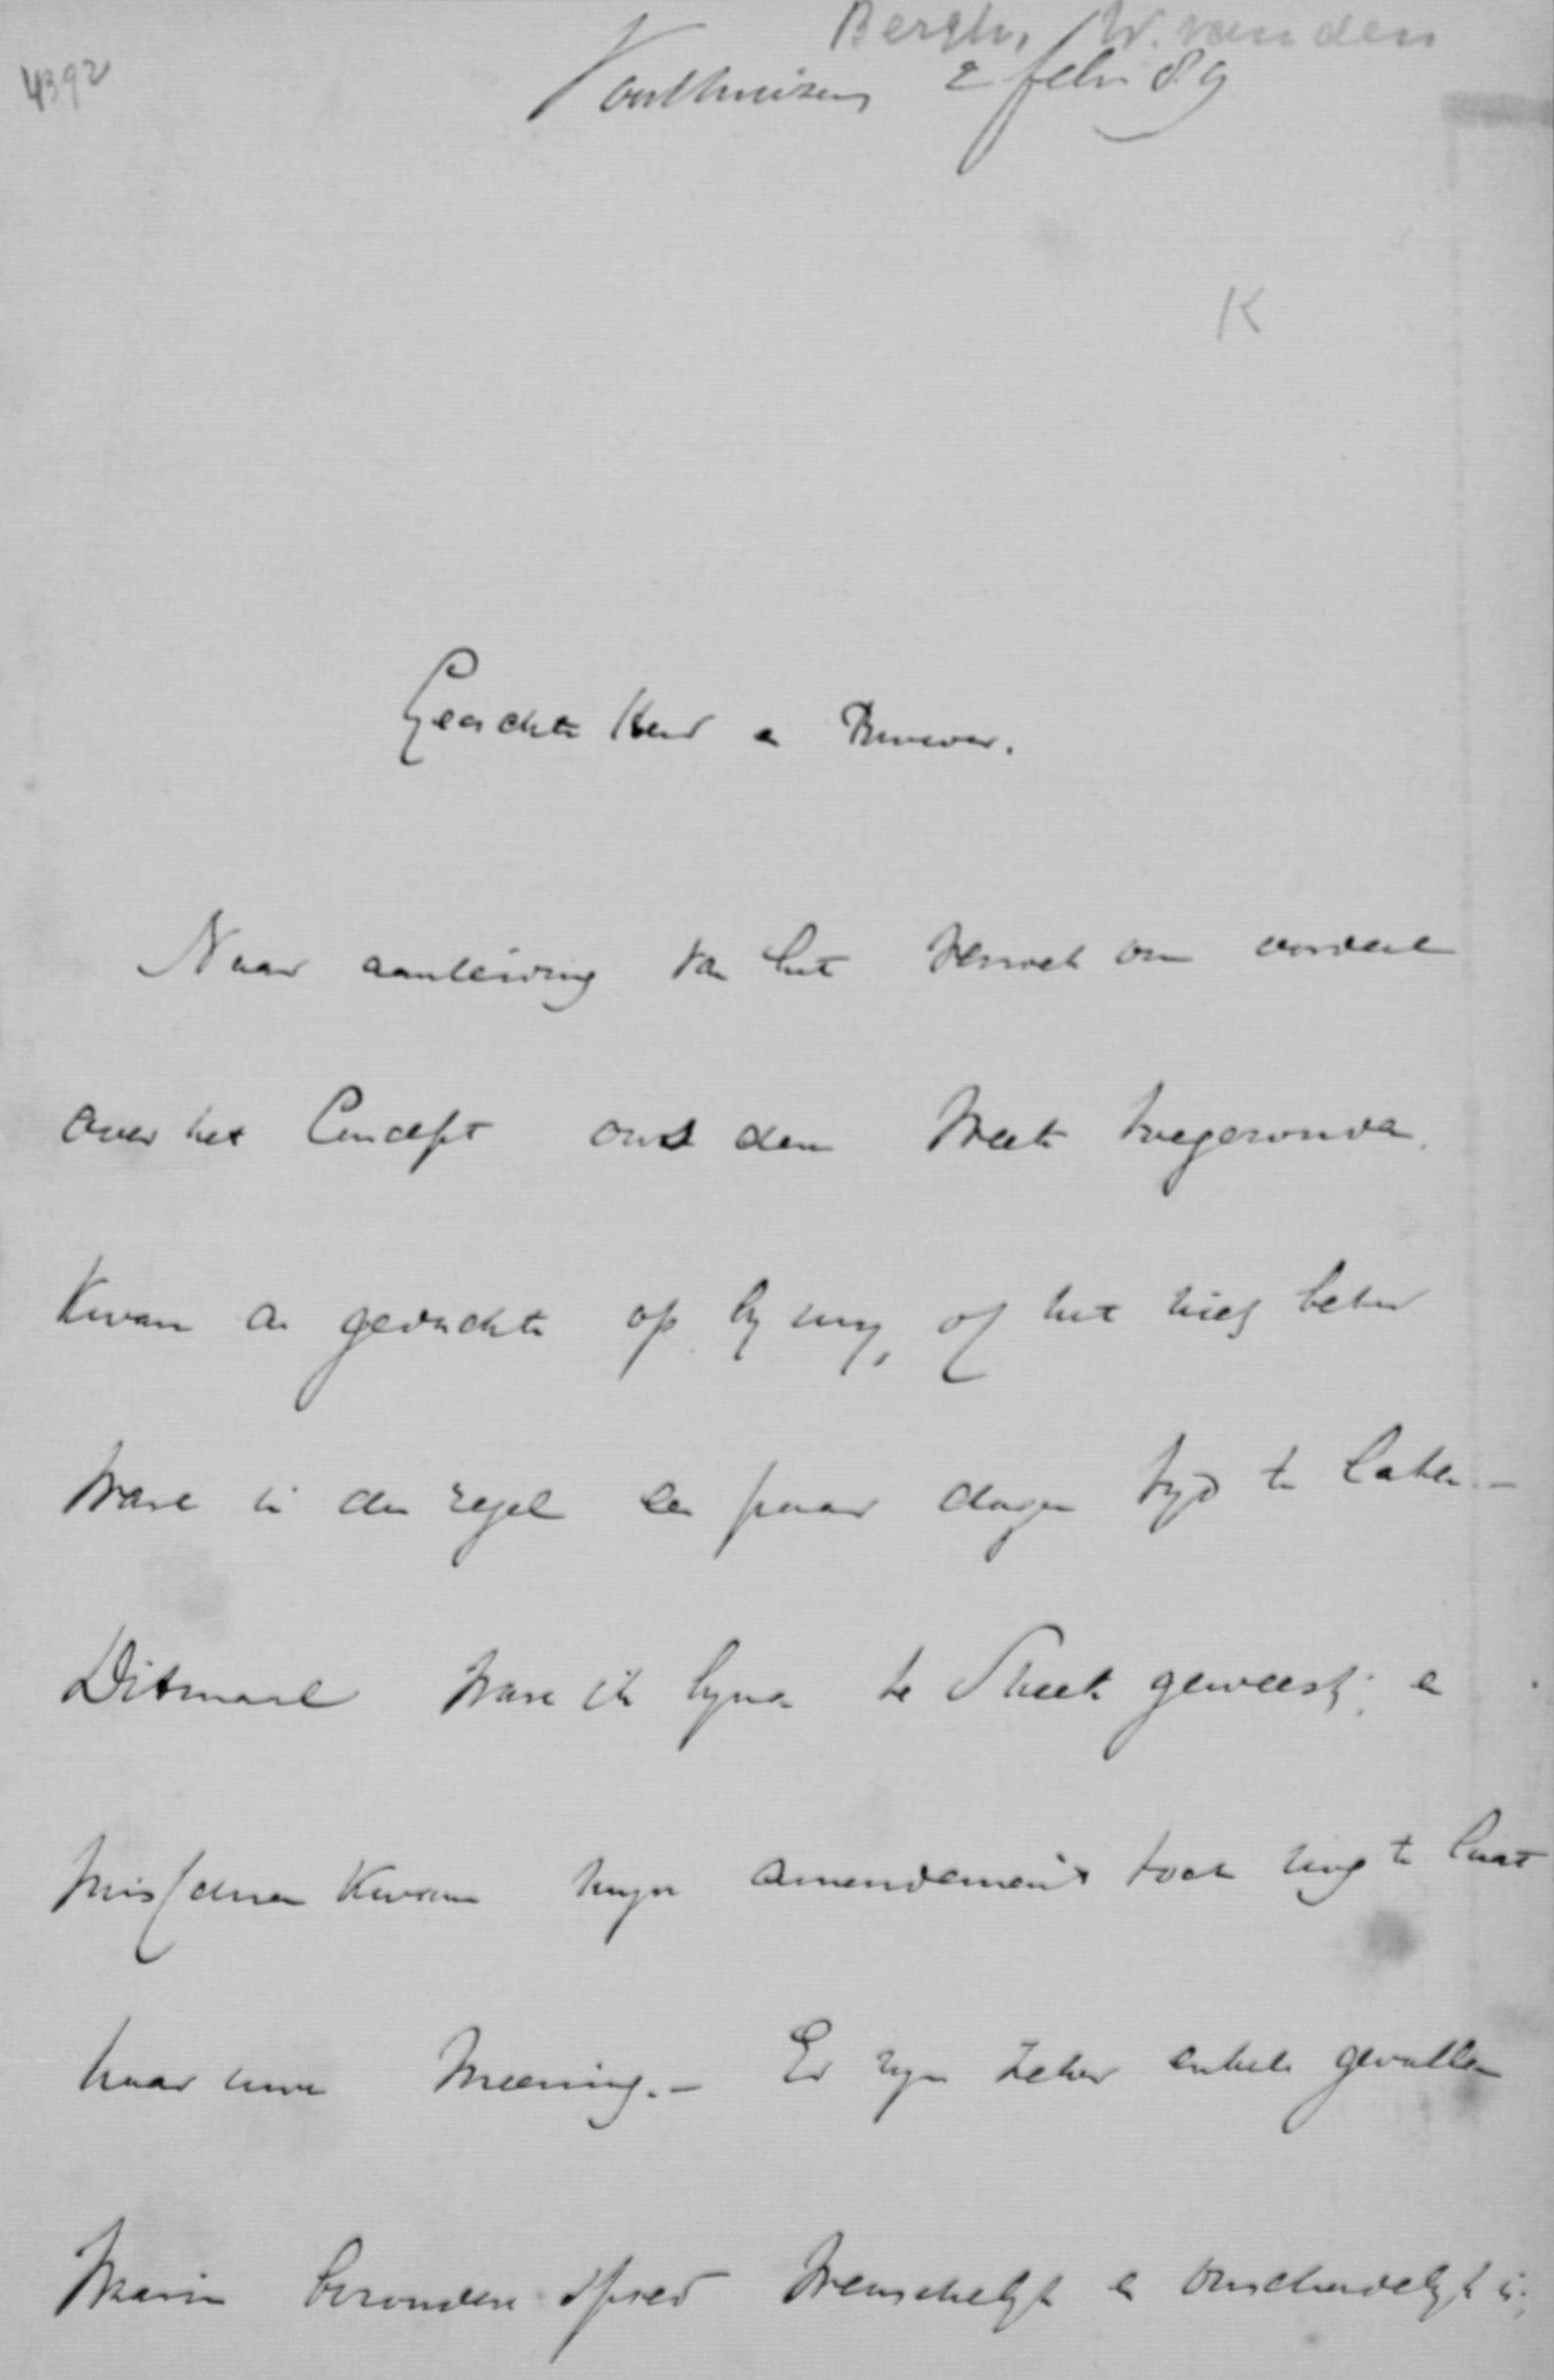 Bergh, W. van den
4392
Voorthuizen 2 febr 89
K
Geachte Heer en Broeder.
Naar aanleiding van het verzoek om oordeel
over het Concept ons den week toegezonden
Kwam de gedachte op by my, of het niet beter
ware in den regel een paar dagen tyd te laten. -
Ditmaal ware ik byna te Sneek geweest; en
misschien kwam myn amendement toch nog te laat
naar uwe meening. - Er zyn zeker enkele gevallen
waarin bezondere spoed wenschelyk en onschadelyk is;